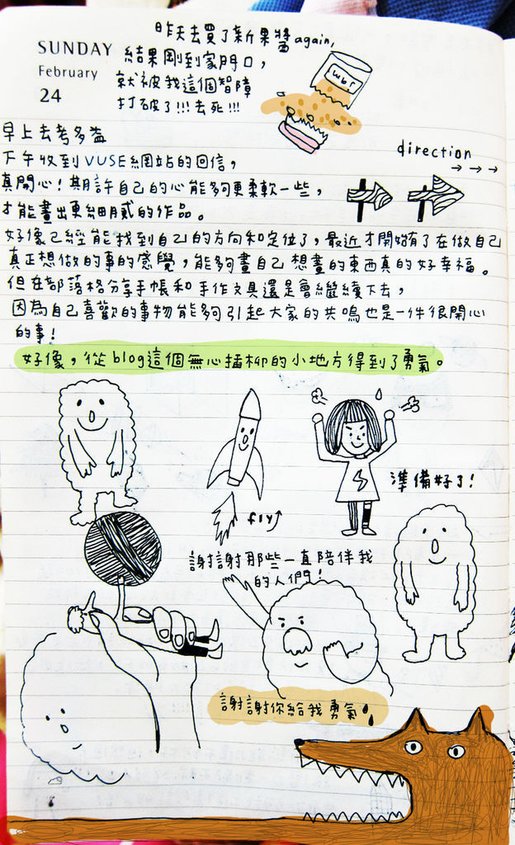 SUNDAY
February
24
昨天去買了新果醬again,
結果剛到家門口,
就被我這個智障
打破了!!!去死!!!
wbr
早上去考多益
下午收到VUSE網站的回信,
真開心!期許自己的心能夠更柔軟一些,
才能畫出更細膩的作品。
direction
好像已經能找到自己的方向和定位了,最近才開始有了在做自己
真正想做的事的感覺,能夠畫自己想畫的東西真的好幸福。
但在部落格分享手帳和手作文具還是會繼續下去,
因為自己喜歡的事物能夠引起大家的共鳴也是一件很開心
的事!
好像,從blog這個無心插柳的小地方得到了勇氣。
fly
準備好了!
謝謝那些一直陪伴我
的人們!
謝謝你給我勇氣!